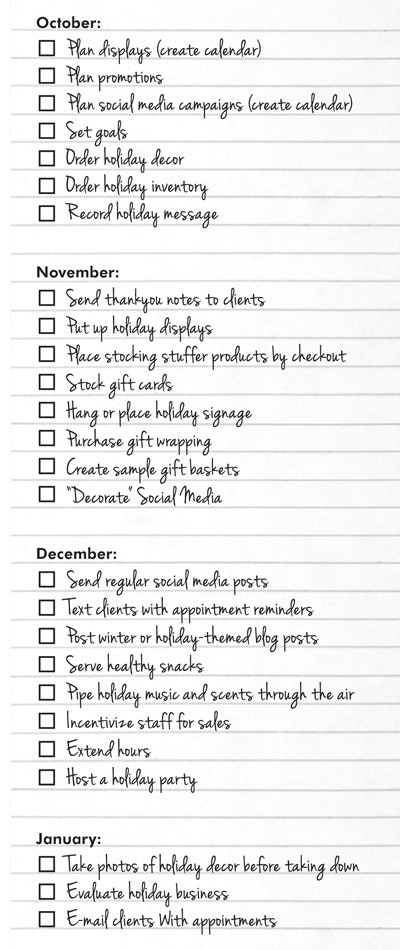 October:
Plan displays (create calendar)
Plan promotions
Plan social media campaigns (create calendar)
Set goals
Order holiday decor
Order holiday inventory
Record holiday message
November:
Send thankyou notes to clients
Put up holiday displays
Place stocking stuffer products by checkout
Stock gift cards
Hang or place holiday signage
Purchase gift wrapping
Create sample gift baskets
"Decorate" Social Media
December:
Send regular social media posts
Text clients with appointment reminders
Post winter or holiday-themed blog posts
Serve healthy snacks
Pipe holiday music and scents through the air
Incentivize staff for sales
Extend hours
Host a holiday party
January:
Take photos of holiday decor before taking down
Evaluate holiday business
E-mail clients With appointments